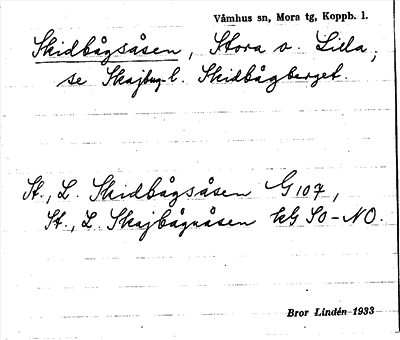 Våmhus sn, Mora tg, Koppb. l.
Skidbågsåsen, Stora o. Lilla,
se Skajbug- l. Skidbågberget.
St., L. Skidbågsåsen G 107,
St., L. Skajbågsåsen kG SO-NO.
Bror Lindén 1933